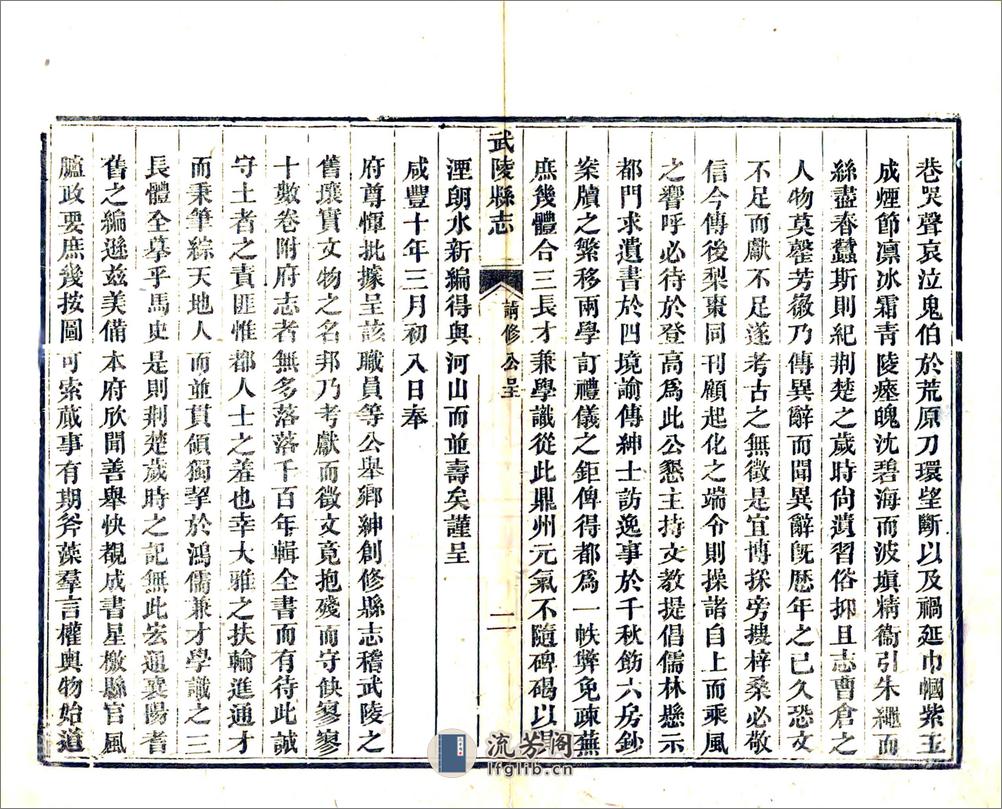 巷哭聲哀泣鬼伯於荒原刀環望斷以及禍延巾幗紫玉
成煙節凛冰霜青陵瘞魄沈碧海而波塡精衞引朱繩而
絲盡春蠶斯則紀荆楚之歲時尙遺習俗抑且志曹倉之
人物莫罄芳徽乃傳異辭而聞異辭旣歴年之已久恐文
不足而獻不足遂考古之無徵是宜博採旁搜梓桑必敬
信今傳後梨棗同刊顧起化之端令則操諸自上而乘風
之響呼必待於登高爲此公懇主持文教提倡儒林懸示
都門求遺書於四境諭傳紳士訪逸事於千秋飭六房鈔
案牘之繁移兩學訂禮儀之鉅俾得都爲一帙弊免疎蕪
庶幾體合三長才兼學識從此鼎州元氣不隨碑碣以
武陵縣志
請修公呈
二
湮朗水新編得與河山而並壽矣謹呈
咸豐十年三月初入日奉
府尊惲批據呈該職員等公舉鄉紳創修縣志稽武陵之
舊壤實文物之名邦乃考獻而徵文竟抱殘而守缺寥寥
十數卷附府志者無多落落千百年輯全書而有待此誠
守土者之責匪惟都人士之羞也幸大雅之扶輪進通才
而秉筆綜天地人而並貫領獨挈於鴻儒兼才學識之三
長體全摹乎馬史是則荆楚歲時之記無此宏通襄陽耆
舊之編遜兹美備本府欣聞善舉快覩成書星檄縣官風
臚政要庶幾按圖可索蕆事有期斧藻羣言權輿物始道
流芳阁
lfglib.cn